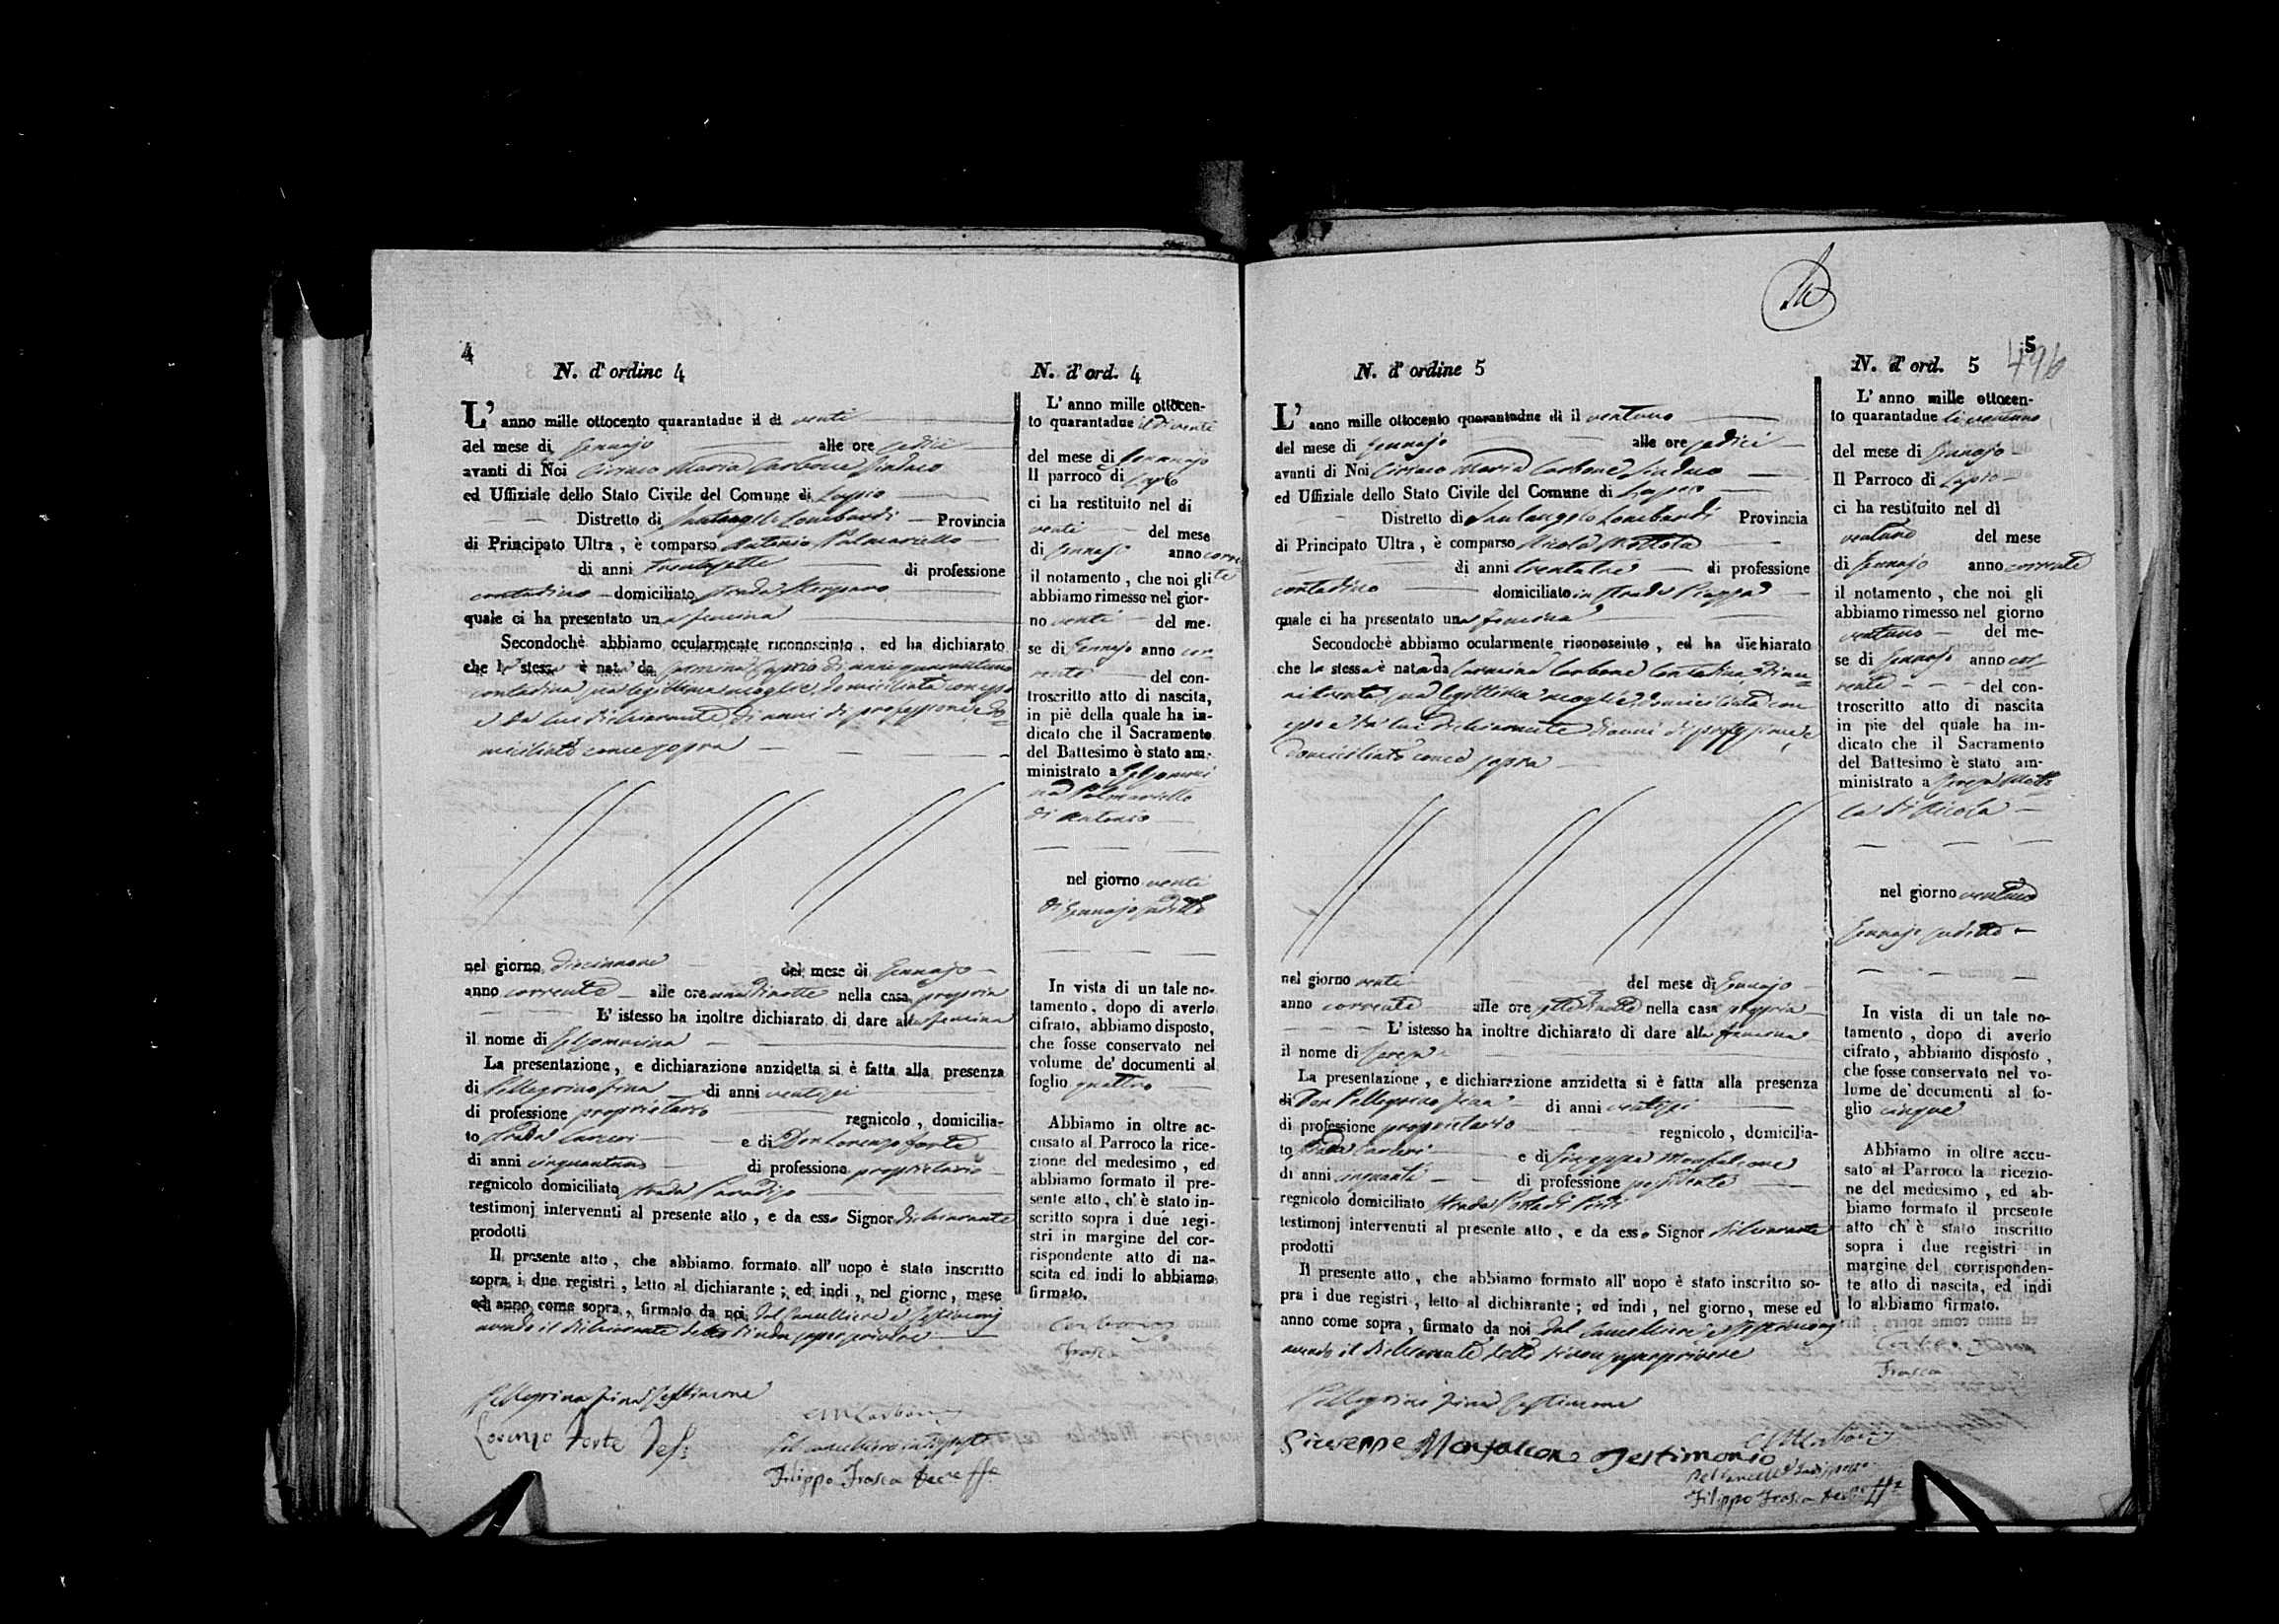 4
N. d'ordine 4
L' anno mille ottocento quarantadue il di venti
del mese di Gennajo alle ore sedici
avanti di Noi Ciriaco Maria Carbone Sindaco
ed Uffiziale dello Stato Civile del Comune di Lapio
Distretto di Santangelo Lombardi Provincia
di Principato Ultra, è comparso Antonio Palmariello
di anni trentasette di professione
contadino domiciliato strada
quale ci ha presentato una femina
Secondochè abbiamo ocularmente riconosciuto, ed ha dichiarato
che la stessa è nata da Carmina Caprio di anni quarantuno
contadina sua legittima moglie domiciliata con esso
e da lui dichiarante di anni di professione, e do-
miciliato come sopra
nel giorno diecinnove del mese di Gennajo
anno corrente alle ore una di notte nella casa propria
L' istesso ha inoltre dichiarato di dare alla femina
il nome di Gelsomina
La presentazione, e dichiarazione anzidetta si è fatta alla presenza
di Pellegrino Zina di anni ventisei
di professione proprietario regnicolo, domicilia-
to strada Carceri e di Don Lorenzo Forte
di anni cinquantuno di professione proprietario
regnicolo domiciliato strada Paradiso
testimonj intervenuti al presente atto, e da esso Signor dichiarante
prodotti
Il presente atto, che abbiamo formato all' uopo è stato inscritto
sopra i due registri, letto al dichiarante; ed indi, nel giorno, mese
ed anno come sopra, firmato da noi dal Cancelliere e testimonj
avendo il dichiarante detto di non saper scrivere
Pellegrino Zina testimone
Lorenzo Forte Tes:
CM Carbone
Pel cancelliere indisposto
Filippo Frasca
N. d' ord. 4
L' anno mille ottocen-
to quarantadue il di venti
del mese di Gennajo
Il parroco di Lapio
ci ha restituito nel di
venti del mese
di Gennajo anno corren
il notamento, che noi gli te
abbiamo rimesso nel gior-
no venti del me-
se di Gennajo anno cor-
rente del con-
troscritto atto di nascita,
in piè della quale ha in-
dicato che il Sacramento
del Battesimo è stato am-
ministrato a Gelsomi
na Palmariello
di Antonio
nel giorno venti
di Gennajo sudetto
In vista di un tale no-
tamento, dopo di averlo
cifrato, abbiamo disposto,
che fosse conservato nel
volume de' documenti al
foglio quattro
Abbiamo in oltre ac-
cusato al Parroco la rice-
zione del medesimo, ed
abbiamo formato il pre-
sente atto, ch' è stato in-
scritto sopra i due regi-
stri in margine del cor-
rispondente atto di na-
scita ed indi lo abbiamo
firmato.
Carbone
Frasca
5
496
N. d' ordine 5
L' anno mille ottocento quarantadue di il ventuno
del mese di Gennajo alle ore sedici
avanti di Noi Ciriaco Maria Carbone Sindaco
ed Uffiziale dello Stato Civile del Comune di Lapio
Distretto di Santangelo Lombardi Provincia
di Principato Ultra, è comparso Nicola Mottola
di anni trentatre di professione
contadino domiciliato in strada Piazza
quale ci ha presentato una femina
Secondochè abbiamo ocularmente riconosciuto, ed ha dichiarato
che la stessa è nata da Carmina Carbone Contadina di an-
ni trenta, sua legittima moglie, domiciliata con
esso e da lui dichiarante di anni di professione, e
domiciliato come sopra
nel giorno venti del mese di Gennajo
anno corrente alle ore sette di notte nella casa propria
L' istesso ha inoltre dichiarato di dare alla femina
il nome di Teresa
La presentazione, e dichiarazione anzidetta si è fatta alla presenza
di Don Pellegrino Zina di anni ventisei
di professione proprietario regnicolo, domicilia-
to strada Carceri e di Giuseppe Monfalcone
di anni cinquanta di professione possidente
regnicolo domiciliato strada Porta di
testimonj intervenuti al presente atto, e da esso Signor dichiarante
prodotti
Il presente atto, che abbiamo formato all' uopo è stato inscritto so-
pra i due registri, letto al dichiarante; ed indi, nel giorno, mese ed
anno come sopra, firmato da noi dal Cancelliere e testimonj
avendo il dichiarante detto di non saper scrivere
Pellegrino Zina testimone
Giuseppe Monfalcone Testimonio
CM Carbone
Pel Cancelliere indisposto
Filippo Frasca
N. d' ord. 5
L' anno mille ottocen-
to quarantadue li ventuno
del mese di Gennajo
Il Parroco di Lapio
ci ha restituito nel dì
ventuno del mese
di Gennajo anno corrente
il notamento, che noi gli
abbiamo rimesso nel giorno
ventuno del me-
se di Gennajo anno cor-
rente del con-
troscritto atto di nascita
in pie del quale ha in-
dicato che il Sacramento
del Battesimo è stato am-
ministrato a Teresa Motto
la di Nicola
nel giorno ventuno
Gennajo sudetto
In vista di un tale no-
tamento, dopo di averlo
cifrato, abbiamo disposto,
che fosse conservato nel vo-
lume de' documenti al fo-
glio cinque
Abbiamo in oltre accu-
sato al Parroco la ricezio-
ne del medesimo, ed ab-
biamo formato il presente
atto ch' è stato inscritto
sopra i due registri in
margine del corrisponden-
te atto di nascita, ed indi
lo abbiamo firmato.
Carbone
Frasca